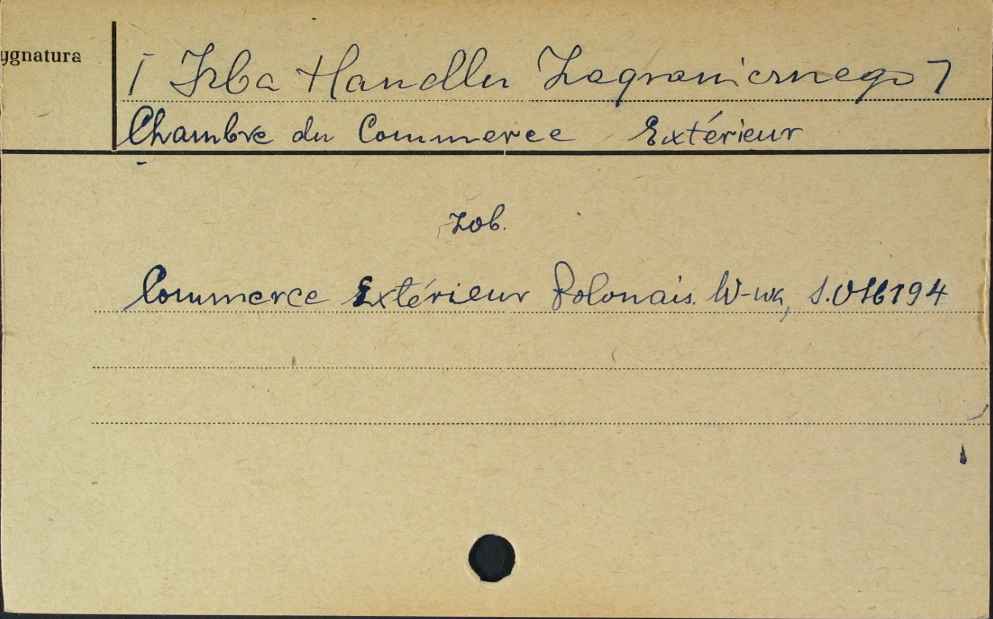 ygnatura
[Izba Handlu Zagranicznego]
Chambre du Commerce Extérieur
zob.
Commerce Extérieur Polonais. W-wa,